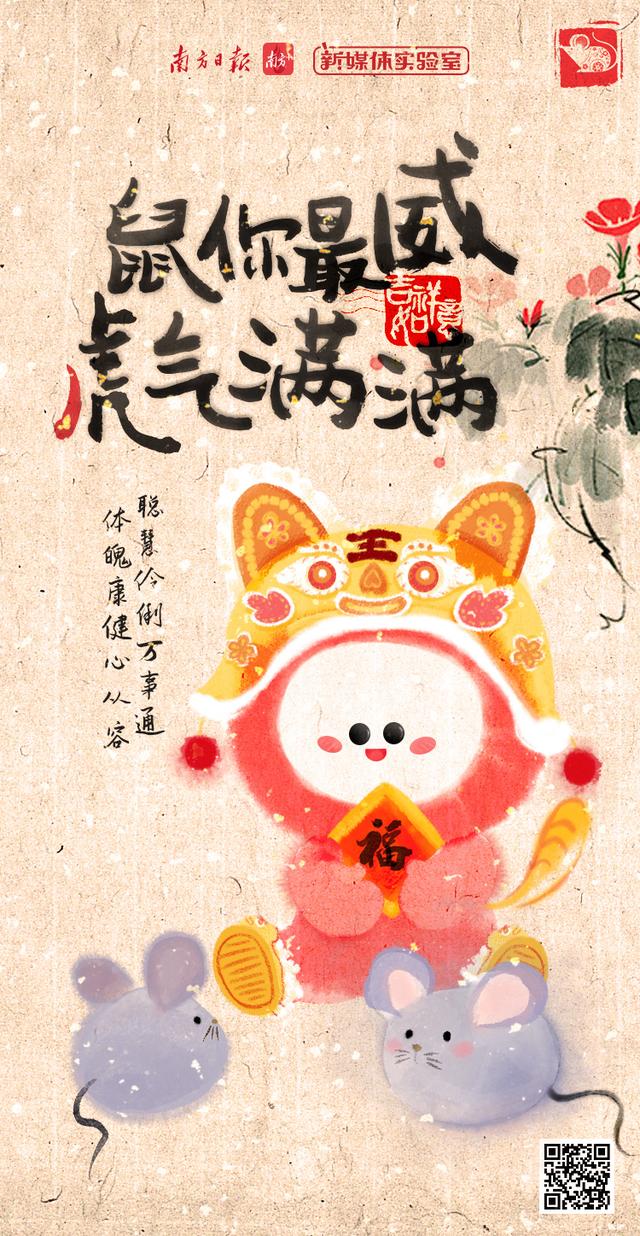 南方日报 南方+ 新媒体实验室
鼠你最威
吉祥如意
虎气满满
聪慧伶俐万事通
体魄康健心从容
王
福